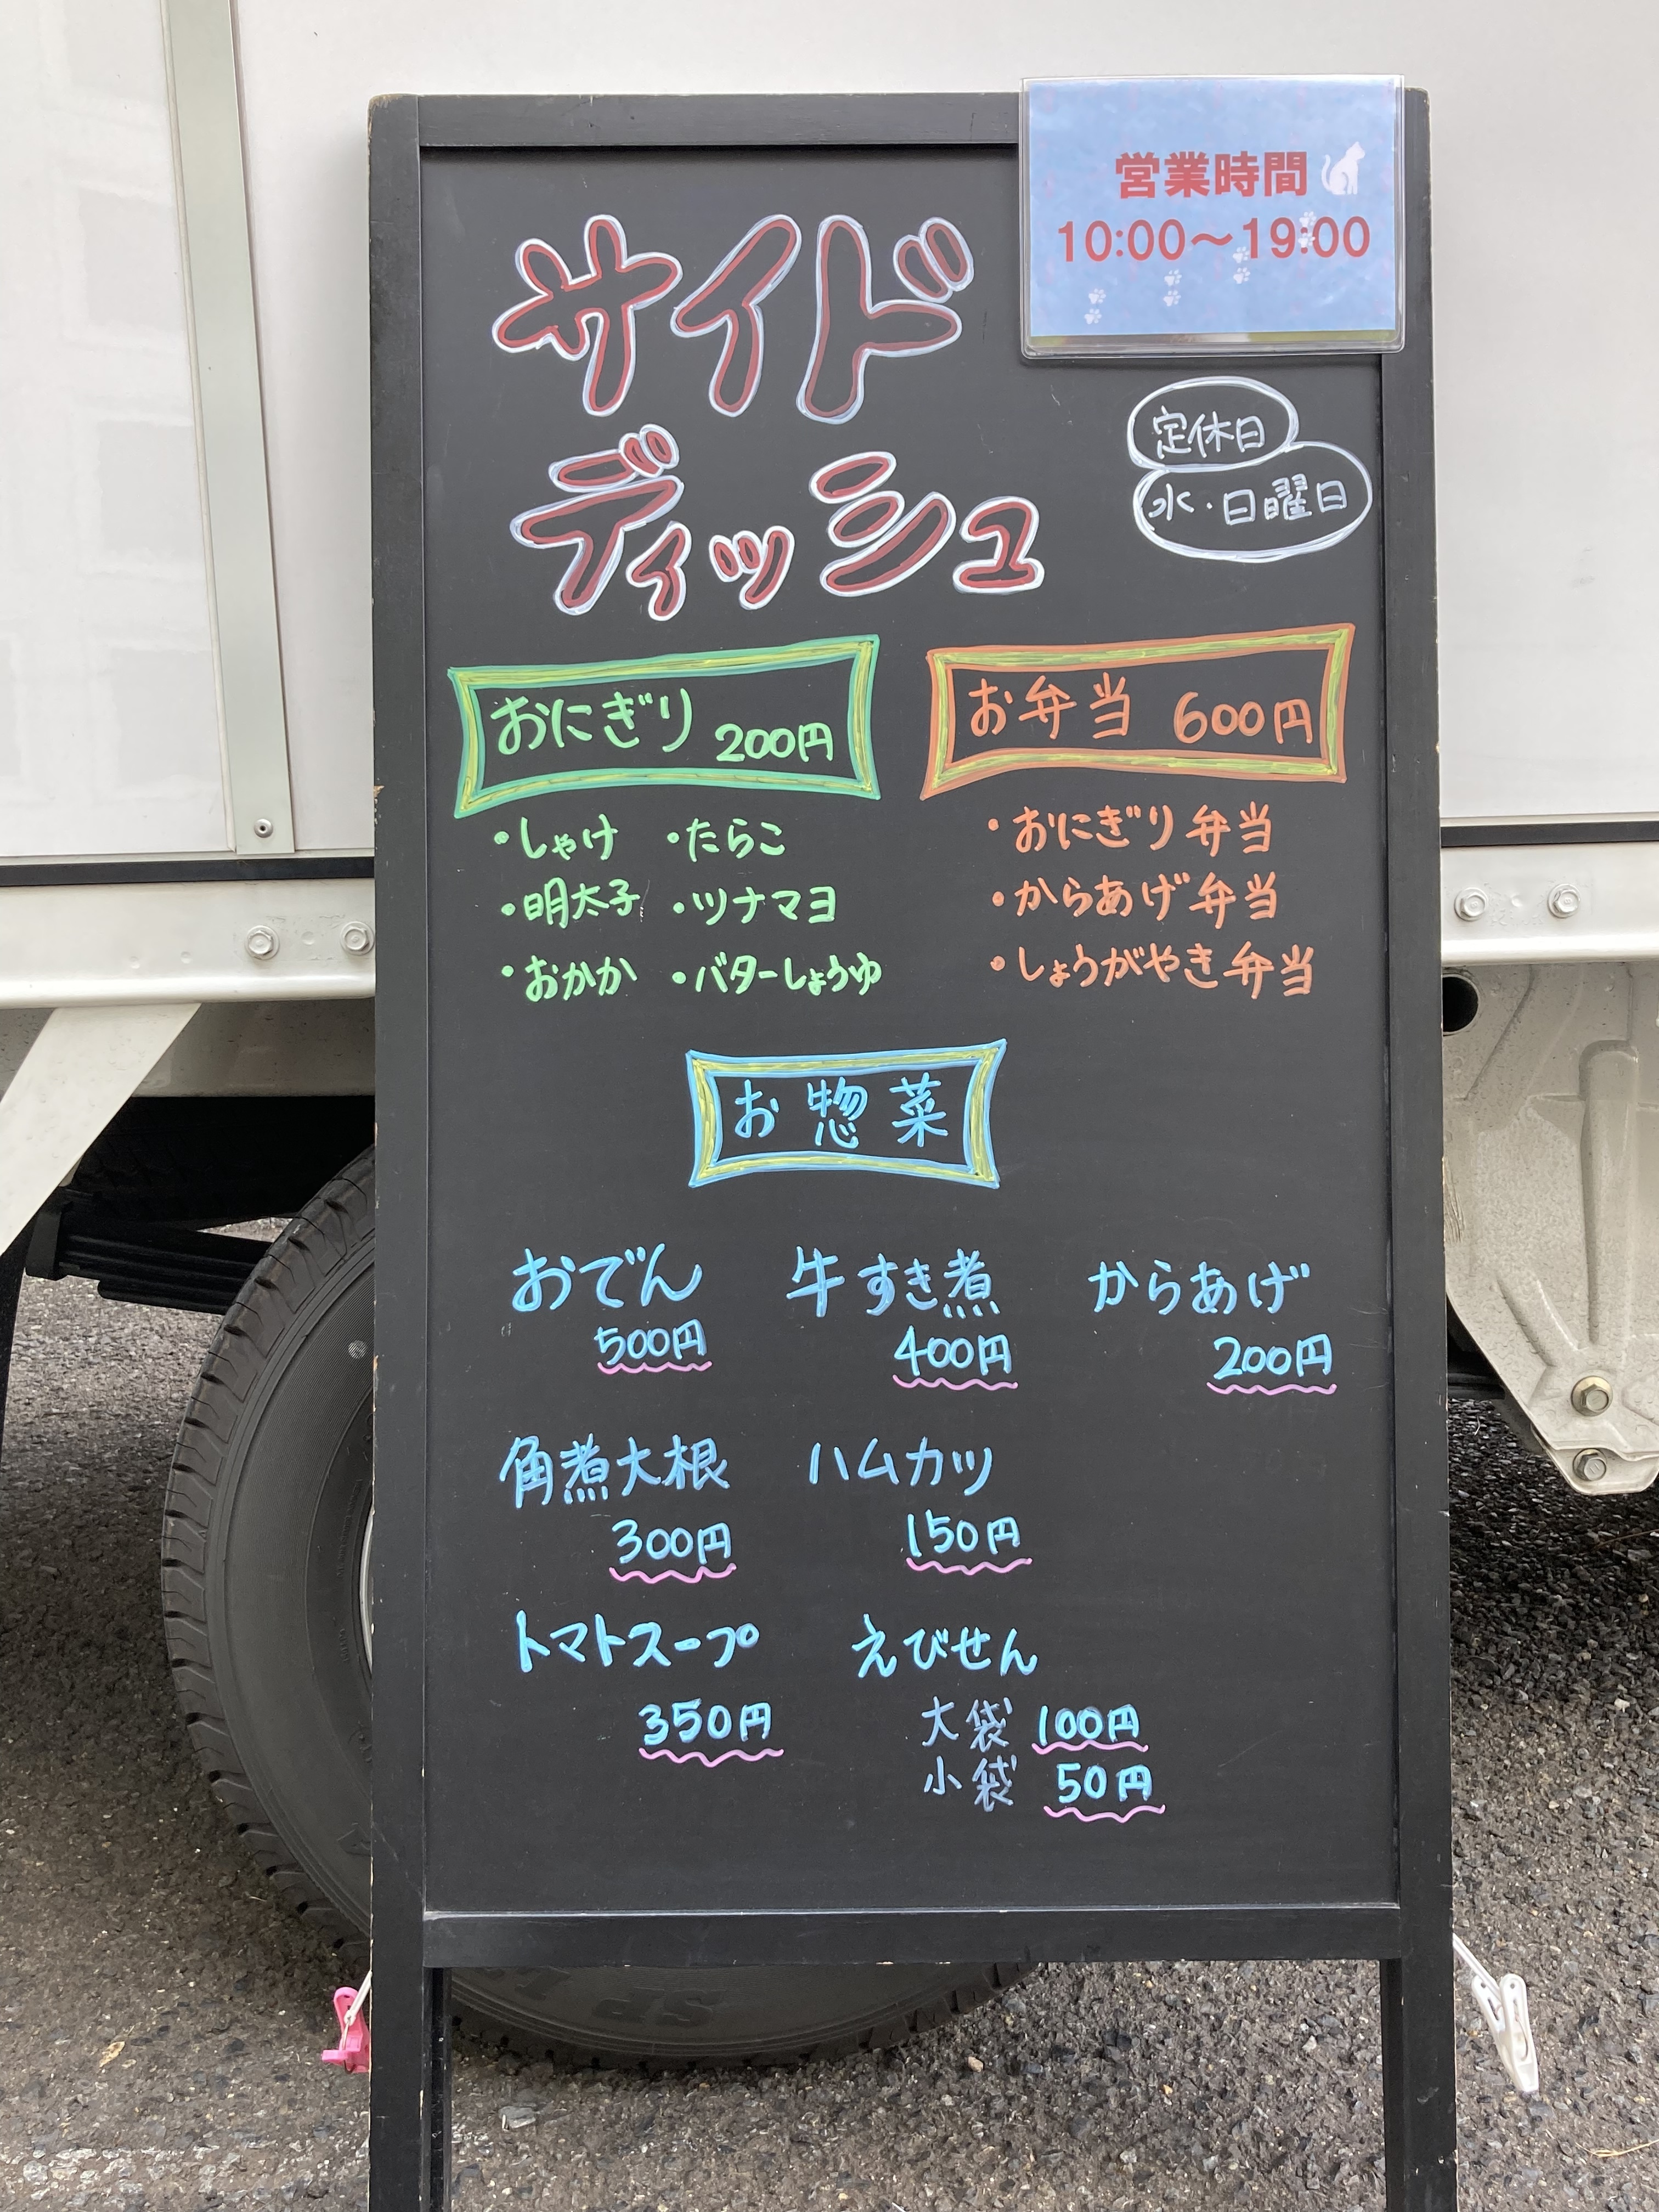 営業時間
10:00～19:00
サイド
ディッシュ
定休日
水・日曜日
おにぎり 200円
・しゃけ ・たらこ
・明太子 ・ツナマヨ
・おかか ・バターしょうゆ
お弁当 600円
・おにぎり弁当
・からあげ弁当
・しょうがやき弁当
お惣菜
おでん
500円
牛すき煮
400円
からあげ
200円
角煮大根
300円
ハムカツ
150円
トマトスープ
350円
えびせん
大袋 100円
小袋 50円
SP